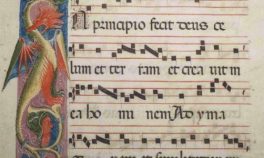 N principio fecit deus ce
lum et ter ram et crea uit in
ea ho mi nem Ad yma